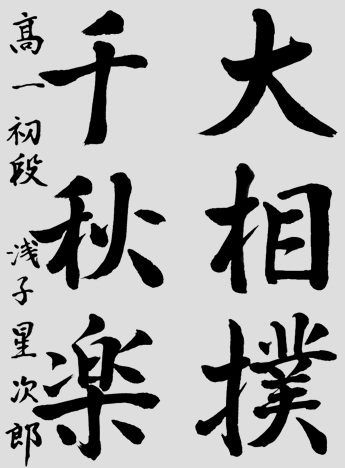 大相撲
千秋楽
高一初段 浅子星次郎